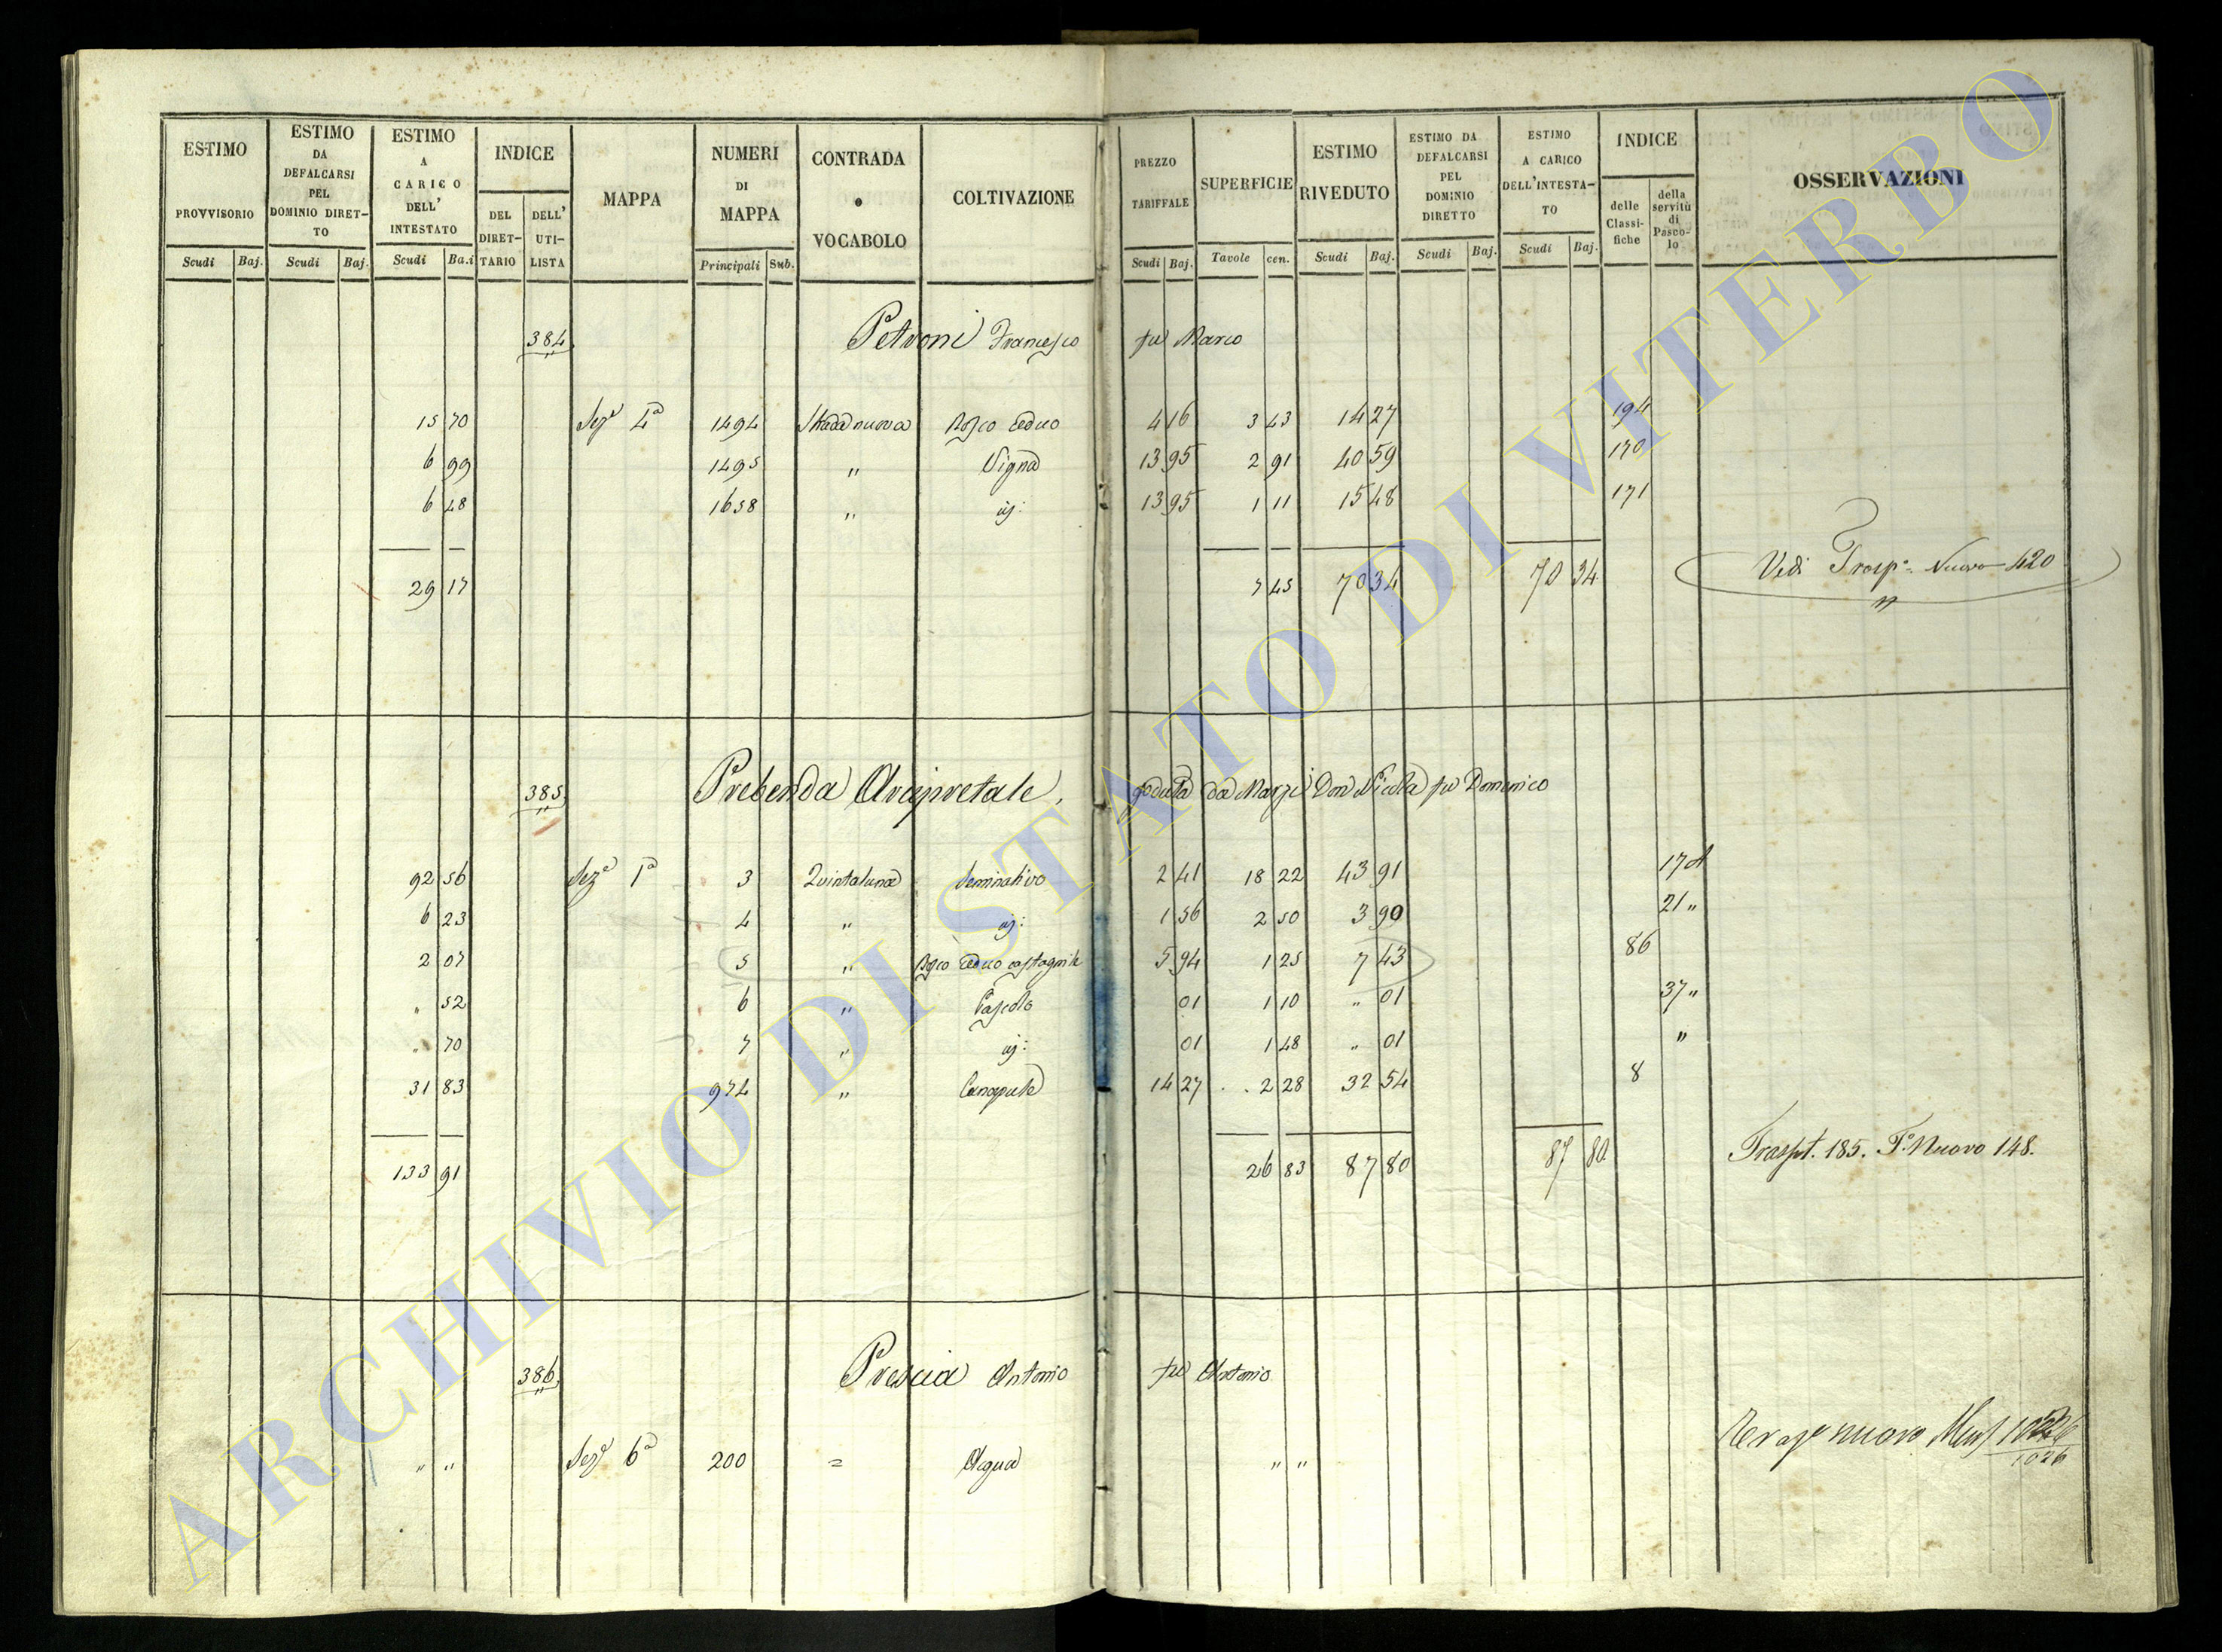 ESTIMO PROVVISORIO Scudi Baj.
ESTIMO DA DEFALCARSI PEL DOMINIO DIRET-TO Scudi Baj.
ESTIMO A CARICO DELL' INTESTATO Scudi Ba.i
INDICE DEL DIRET-TARIO DELL' UTI-LISTA
MAPPA
NUMERI DI MAPPA Principali Sub.
CONTRADA o VOCABOLO
COLTIVAZIONE
PREZZO TARIFFALE Scudi Baj.
SUPERFICIE Tavole cen.
ESTIMO RIVEDUTO Scudi Baj.
ESTIMO DA DEFALCARSI PEL DOMINIO DIRETTO Scudi Baj.
ESTIMO A CARICO DELL'INTESTA-TO Scudi Baj.
INDICE delle Classi-fiche della servitù di Pasco-lo
OSSERVAZIONI
384 Petroni Francesco fu Marco
15 70 Sez.e 4a 1494 Strada nuova Bosco ceduo 4 16 3 43 14 27 194
6 99 1495 " Vigna 13 95 2 91 40 59 170
6 48 1658 " id: 13 95 1 11 15 48 171
29 17 7 45 70 34 70 34 Vedi Trasp.o Nuovo 420
385 Prebenda Arcipretale, goduta da Marzi Don Nicola fu Domenico
92 56 Sez.e 1a 3 Quintaluna Seminativo 2 41 18 22 43 91 17 A
6 23 4 " id: 1 56 2 50 3 90 21 "
2 07 5 " Bosco ceduo castagnile 5 94 1 25 7 43 86
" 52 6 " Pascolo 01 1 10 " 01 37 "
" 70 7 " id: 01 1 48 " 01 "
31 83 974 " Canapule 14 27 2 28 32 54 8
133 91 26 83 87 80 87 80 Traspt. 185. F.o Nuovo 148.
386 Prescia Antonio fu Antonio
" " Sez.e 6a 200 = Acqua " "
nuovo
1026
ARCHIVIO DI STATO DI VITERBO